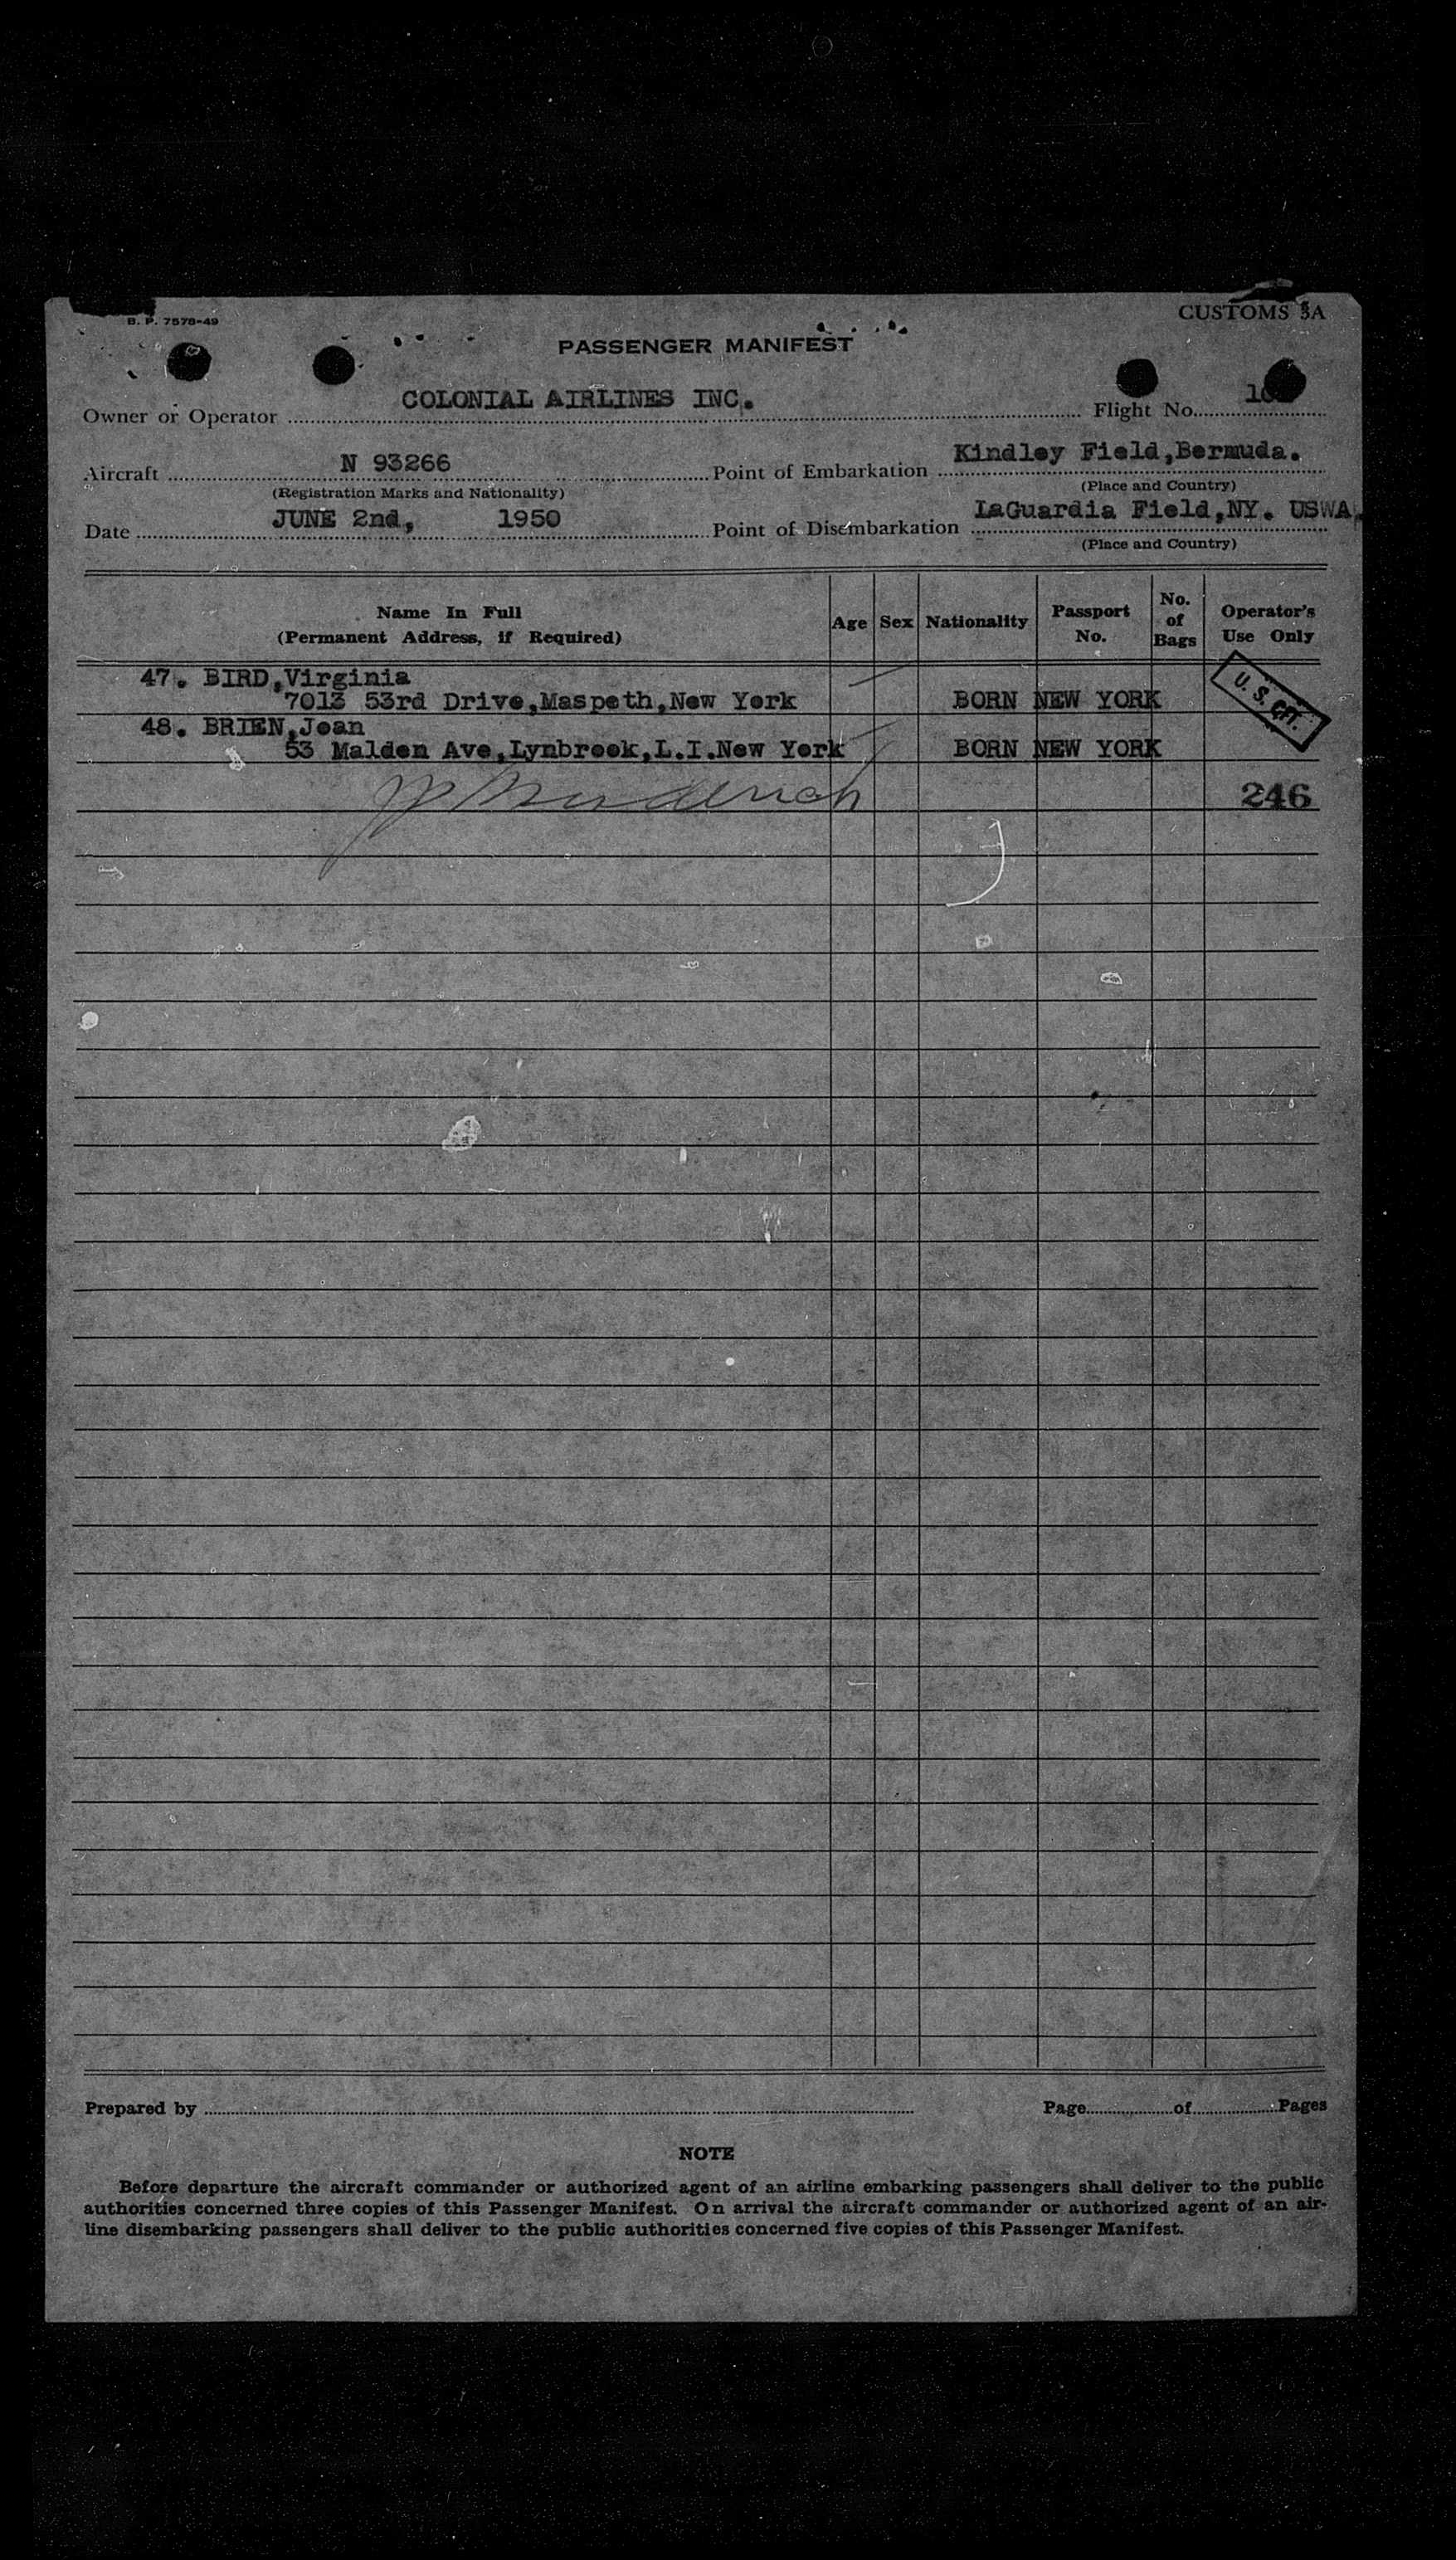 B. P. 7578-49
CUSTOMS 3A
PASSENGER MANIFEST
Owner or Operator COLONIAL AIRLINES INC. Flight No.
Aircraft N 93266 Point of Embarkation Kindley Field,Bermuda.
(Registration Marks and Nationality) (Place and Country)
Date JUNE 2nd, 1950 Point of Disembarkation LaGuardia Field,NY. USWA
(Place and Country)
Name In Full (Permanent Address, if Required) Age Sex Nationality Passport No. No. of Bags Operator's Use Only
47. BIRD,Virginia
7013 53rd Drive,Maspeth,New York BORN NEW YORK
U. S. CIT.
48. BRIEN,Joan
53 Malden Ave,Lynbrook,L.I.New York BORN NEW YORK
246
Prepared by Page of Pages
NOTE
Before departure the aircraft commander or authorized agent of an airline embarking passengers shall deliver to the public
authorities concerned three copies of this Passenger Manifest. On arrival the aircraft commander or authorized agent of an air-
line disembarking passengers shall deliver to the public authorities concerned five copies of this Passenger Manifest.